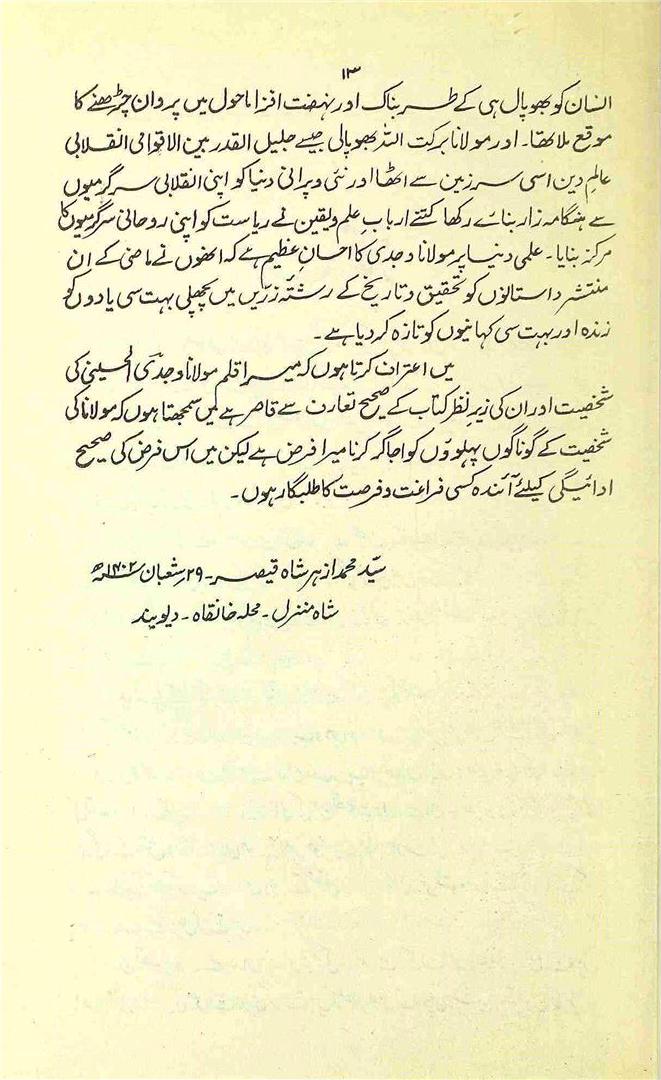 ۱۳
انسان کو بھوپال ہی کے طربناک اور نہضت افزا ماحول میں پروان چڑھنے کا
موقع ملا تھا۔ اور مولانا برکت اللہ بھوپالی جیسے جلیل القدر بین الاقوامی انقلابی
عالمِ دین اسی سرزمین سے اٹھا اور نئی و پرانی دنیا کو اپنی انقلابی سرگرمیوں
سے ہنگامہ زار بنائے رکھا کتنے اربابِ علم و یقین نے ریاست کو اپنی روحانی سرگرمیوں کا
مرکز بنایا۔ علمی دنیا پر مولانا وجدی کا احسانِ عظیم ہے کہ انھوں نے ماضی کے ان
منتشر داستانوں کو تحقیق و تاریخ کے رشتۂ زرّیں میں پچھلی بہت سی یادوں کو
زندہ اور بہت سی کہانیوں کو تازہ کر دیا ہے۔
میں اعتراف کرتا ہوں کہ میرا قلم مولانا وجدی الحسینی کی
شخصیت اور ان کی زیرِ نظر کتاب کے صحیح تعارف سے قاصر ہے میں سمجھتا ہوں کہ مولانا کی
شخصیت کے گوناگوں پہلووں کو اجاگر کرنا میرا فرض ہے لیکن میں اس فرض کی صحیح
ادائیگی کیلئے آئندہ کسی فراغت و فرصت کا طلبگار ہوں۔
سیّد محمد ازہر شاہ قیصر۔ ۲۹؍شعبان ۱۴۰۲ھ
شاہ منزل۔ محلہ خانقاہ۔ دیوبند